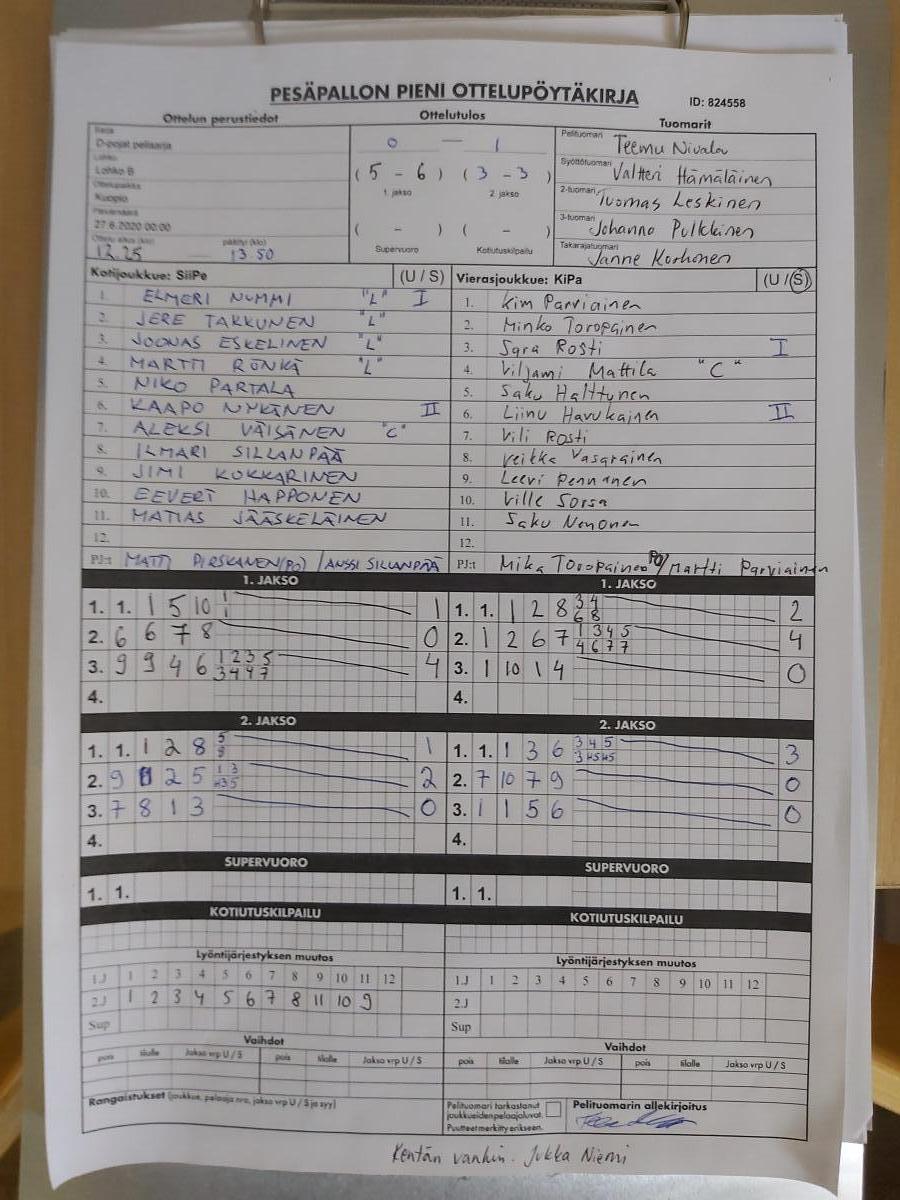 PESÄPALLON PIENI OTTELUPÖYTÄKIRJA
ID: 824558
Ottelun perustiedot
Ottelutulos
Tuomarit
Sarja
D-pojat pelisarja
Lohko
Lohko B
Ottelupaikka
Kuopio
Päivämäärä
27.6.2020 00:00
Ottelu alkoi (klo) päättyi (klo)
12.25 13.50
0 — 1
( 5 - 6 ) ( 3 - 3 )
1. jakso 2. jakso
( - ) ( - )
Supervuoro Kotiutuskilpailu
Pelituomari Teemu Nivala
Syöttötuomari Valtteri Hämäläinen
2-tuomari Tuomas Leskinen
3-tuomari Johanna Pulkkinen
Takarajatuomari Janne Korhonen
Kotijoukkue: SiiPe (U / S)
1. ELMERI NUMMI "L" I
2. JERE TAKKUNEN "L"
3. JOONAS ESKELINEN "L"
4. MARTTI RÖNKÄ "L"
5. NIKO PARTALA
6. KAAPO NYKÄNEN II
7. ALEKSI VÄISÄNEN "C"
8. ILMARI SILLANPÄÄ
9. JIMI KOKKARINEN
10. EEVERT HAPPONEN
11. MATIAS JÄÄSKELÄINEN
12.
PJ:t MATTI PIRSKANEN(PO) /ANSSI SILLANPÄÄ
Vierasjoukkue: KiPa (U / S)
1. Kim Parviainen
2. Minka Toropainen
3. Sara Rosti I
4. Viljami Mattila "C"
5. Saku Halttunen
6. Liinu Havukainen II
7. Vili Rosti
8. Veikka Vasarainen
9. Leevi Pennanen
10. Ville Sorsa
11. Saku Nenonen
12.
PJ:t Mika Toropainen PO/Martti Parviainen
1. JAKSO
1. 1. 1 5 10 1 1 1
2. 6 6 7 8 0
3. 9 9 4 6 1 2 3 5 3 4 4 7 4
4.
1. JAKSO
1. 1. 1 2 8 3 4 6 8 2
2. 1 2 6 7 1 3 4 5 4 6 7 7 4
3. 1 10 1 4 0
4.
2. JAKSO
1. 1. 1 2 8 5 8 1
2. 9 2 5 1 3 2
3. 7 8 1 3 0
4.
2. JAKSO
1. 1. 1 3 6 3 4 5 3
2. 7 10 7 9 0
3. 1 1 5 6 0
4.
SUPERVUORO
1. 1.
SUPERVUORO
1. 1.
KOTIUTUSKILPAILU
KOTIUTUSKILPAILU
Lyöntijärjestyksen muutos
1.J 1 2 3 4 5 6 7 8 9 10 11 12
2.J 1 2 3 4 5 6 7 8 11 10 9
Sup
Lyöntijärjestyksen muutos
1.J 1 2 3 4 5 6 7 8 9 10 11 12
2.J
Sup
Vaihdot
pois tilalle Jakso vrp U / S pois tilalle Jakso vrp U / S
Vaihdot
pois tilalle Jakso vrp U / S pois tilalle Jakso vrp U / S
Rangaistukset (joukkue, pelaaja nro, jakso vrp U / S ja syy)
Pelituomari tarkastanut
joukkueiden pelaajaluvat.
Puutteet merkitty erikseen.
Pelituomarin allekirjoitus
Kentän vanhin. Jukka Niemi